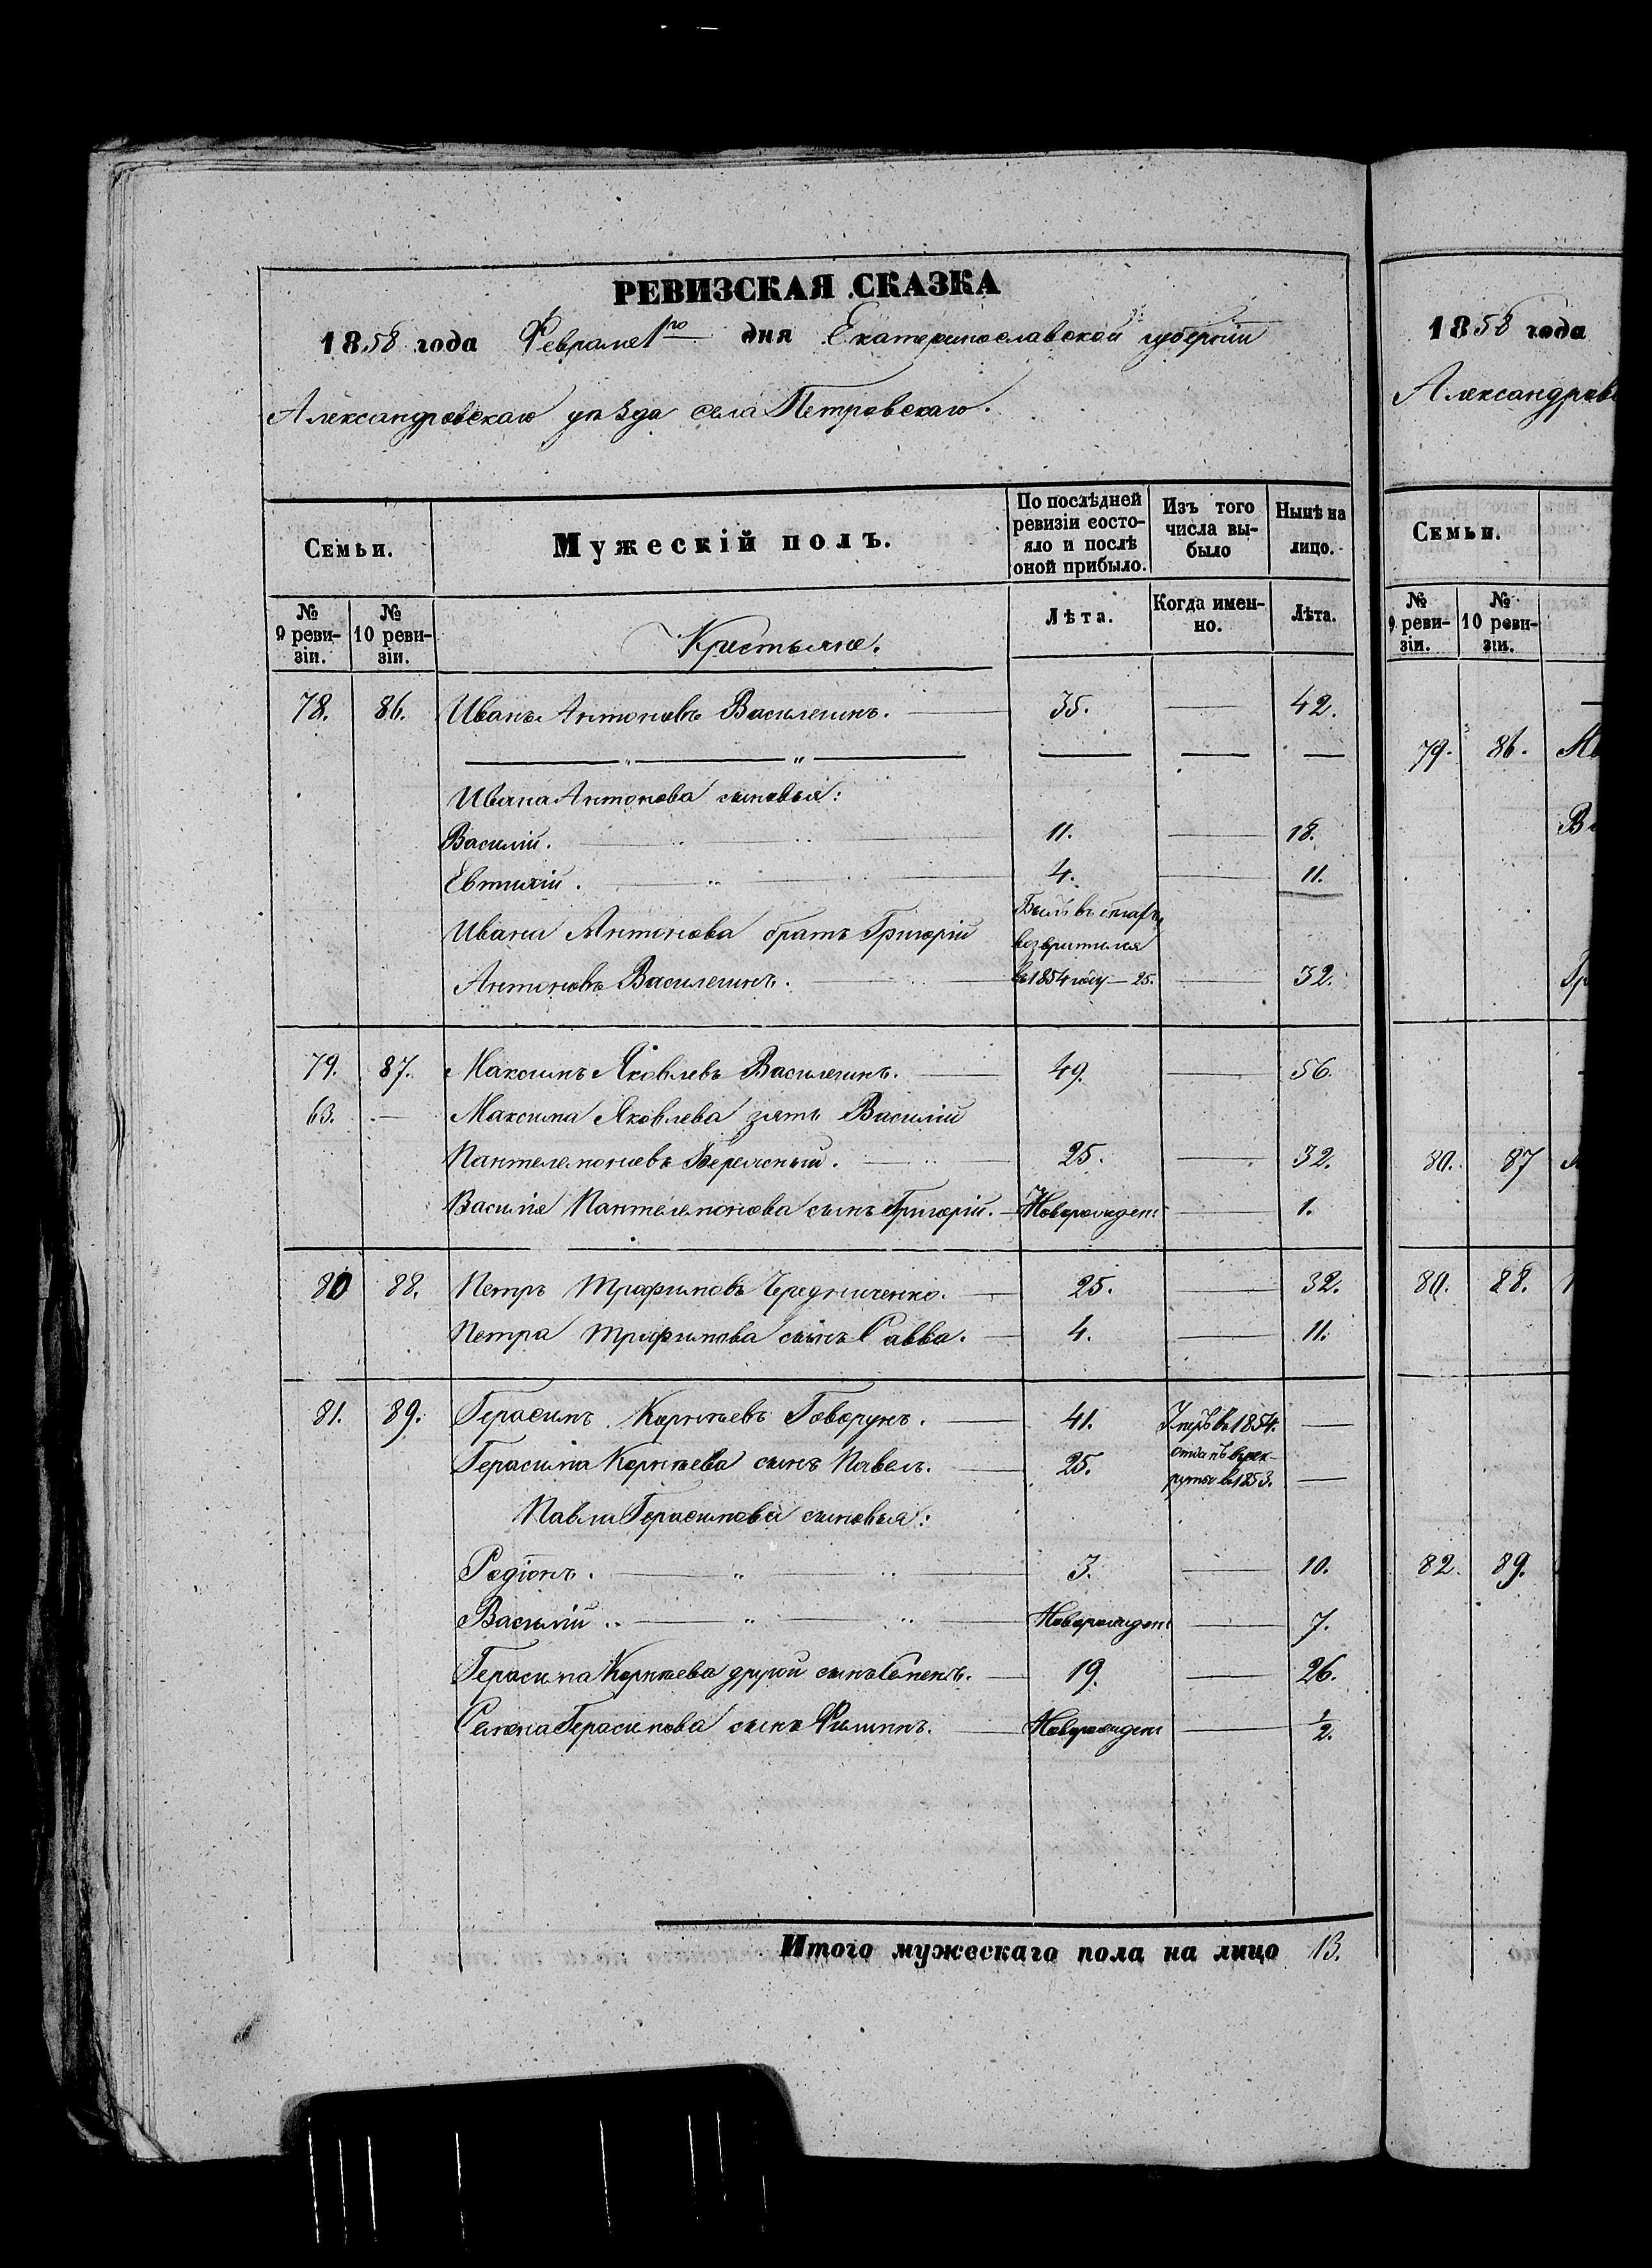 РЕВИЗСКАЯ СКАЗКА
1858 года Февраля 1го дня Екатеринославской губерніи
Александровскаго уѣзда села Петровскаго.
Семьи.
Мужескій полъ.
По послѣдней ревизіи состояло и послѣ оной прибыло.
Изъ того числа выбыло
Нынѣ на лицо.
№ 9 ревизіи.
№ 10 ревизіи.
Крестьяне.
Лѣта.
Когда именно.
Лѣта.
78. 86. Иванъ Антоновъ Василегинъ. 35. — 42.
Ивана Антонова сыновья:
Василій. 11. — 18.
Евтихій. 4. — 11.
Ивана Антонова братъ Григорій Былъ въ бѣгахъ
возвратился
Антоновъ Василегинъ. въ 1854 году — 25. — 32.
79. 87. Максимъ Яковлевъ Василегинъ. — 49. — 56.
63. — Максима Яковлева зять Василій
Пантелемоновъ Бережный. — 25. — 32.
Василія Пантелемонова сынъ Григорій. — Новорожден — 1.
80 88. Петръ Трофимовъ Чередниченко. — 25. — 32.
Петра Трофимова сынъ Савва. — 4. — 11.
81. 89. Герасимъ Корнѣевъ Говорунъ. — 41. Умеръ въ 1854. —
Герасима Корнѣева сынъ Павелъ. — 25. отданъ в рек-
руты въ 1853. —
Павла Герасимова сыновья:
Родіонъ. 3. — 10.
Василій. Новорожден — 7.
Герасима Корнѣева другой сынъ Семенъ. — 19. — 26.
Семена Герасимова сынъ Филипъ. — Новорожден — 1/2.
Итого мужескаго пола на лицо 13.
1858 года
Александровс
Семьи.
№ 9 ревизіи.
№ 10 ревизіи.
79. 86.
80. 87
80. 88.
82. 89.